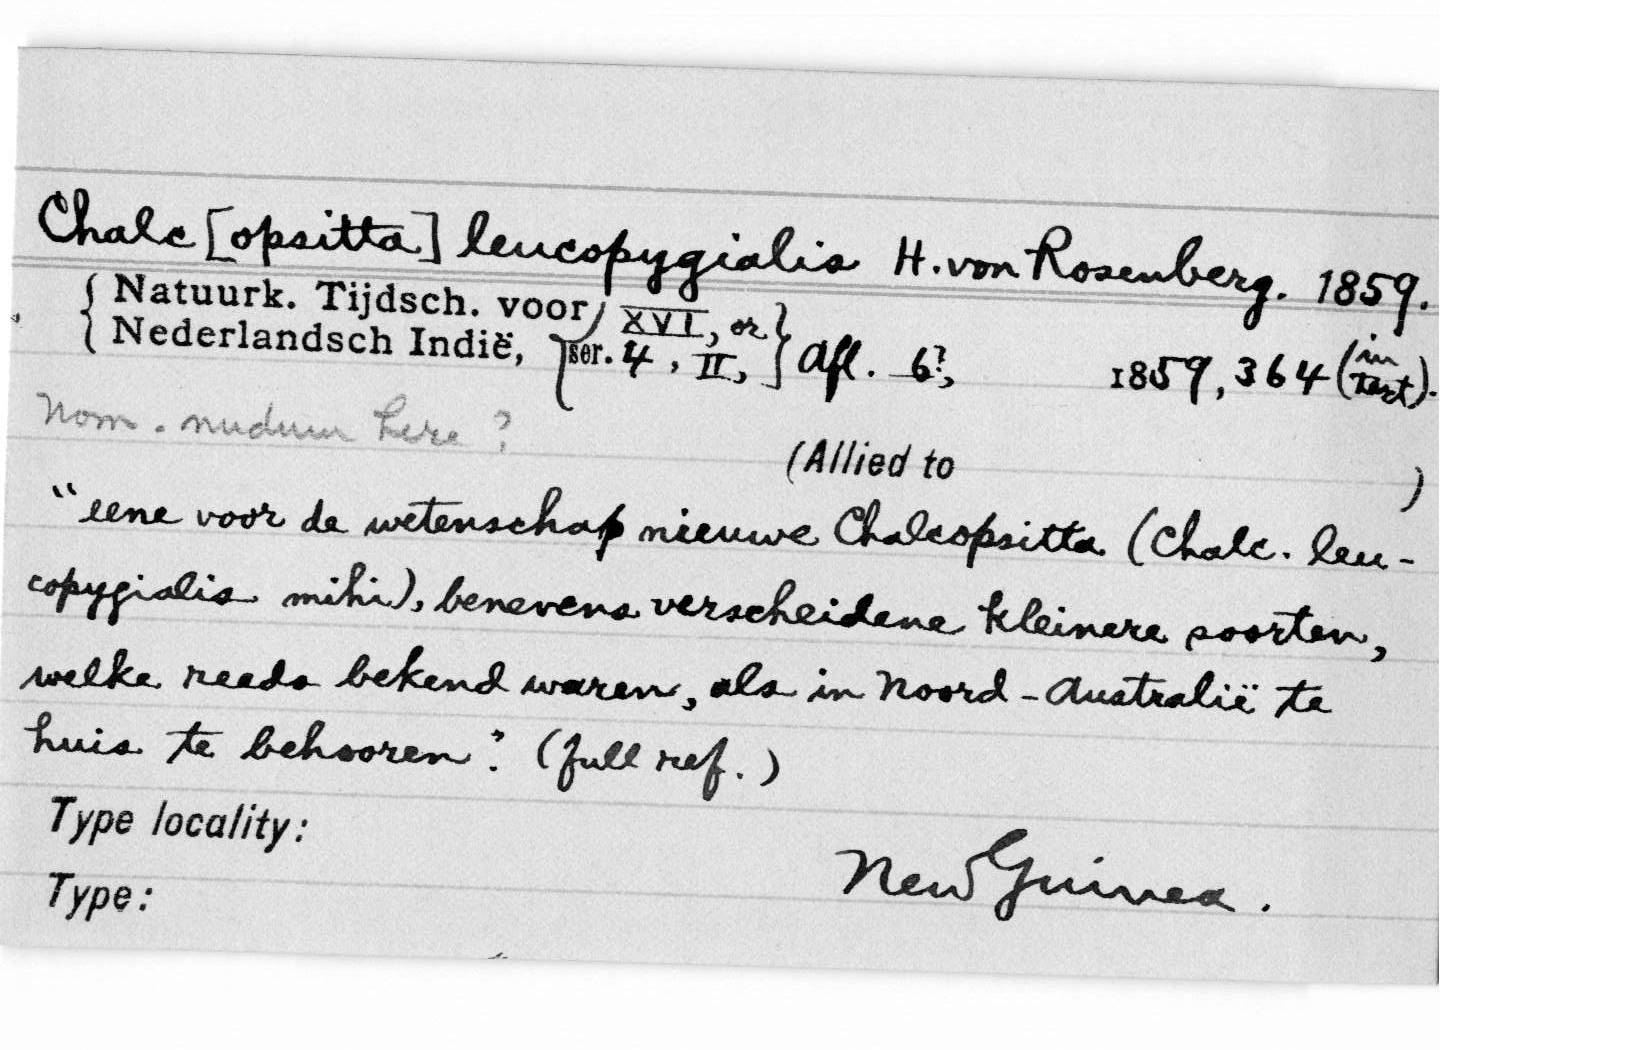 Chalc[opsitta] leucopygialis H. von Rosenberg. 1859.
{ Natuurk. Tijdsch. voor Nederlandsch Indië, } XVI, or ser. 4, II, } Afl. 6?, 1859, 364 (in text).
Nom. nudum here?
(Allied to )
"eene voor de wetenschap nieuwe Chalcopsitta (Chalc. leu-
copygialis mihi), benevens verscheidene kleinere soorten,
welke reeds bekend waren, als in Noord-Australië te
huis te behooren". (full ref.)
Type locality:
New Guinea.
Type: